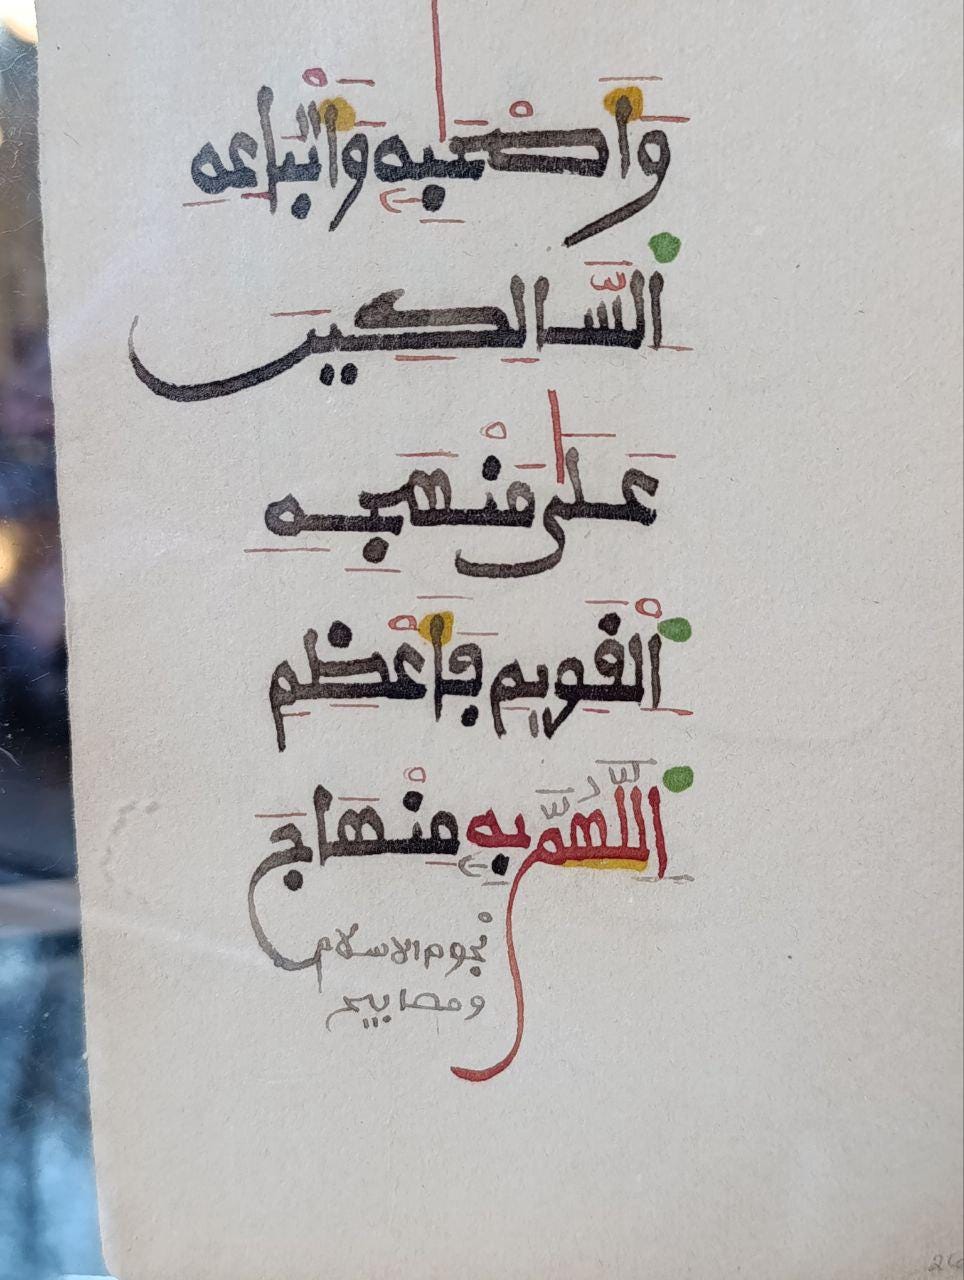 وَأَصْحَٰبِهِ وَأَتْبَاعِهِ
السَّالِكِينَ
عَلَىٰ مَنْهَجِهِ
الْقَوِيمِ فَأَعْظِمِ
اللَّهُمَّ بِهِ مِنْهَاجَ
نجوم الاسلام
ومصابيح